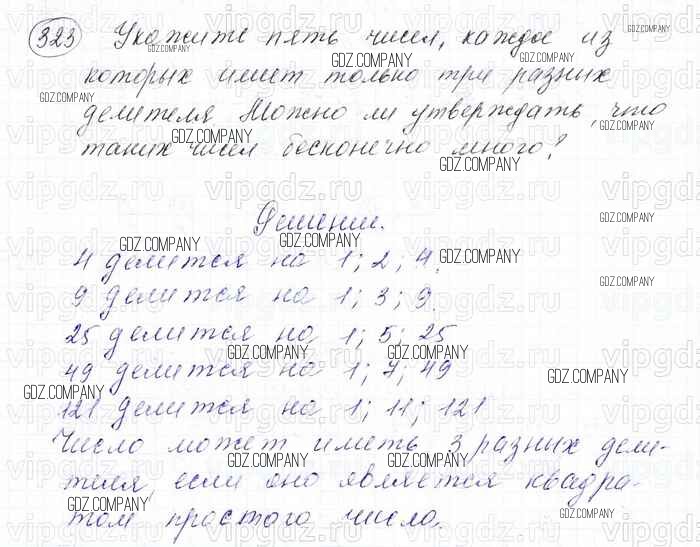 323 Укажите пять чисел, каждое из
которых имеет только три разных
делителя. Можно ли утверждать, что
таких чисел бесконечно много?
Решение.
4 делится на 1; 2; 4.
9 делится на 1; 3; 9.
25 делится на 1; 5; 25
49 делится на 1; 7; 49
121 делится на 1; 11; 121
Число может иметь 3 разных дели-
теля, если оно является квадра-
том простого числа.